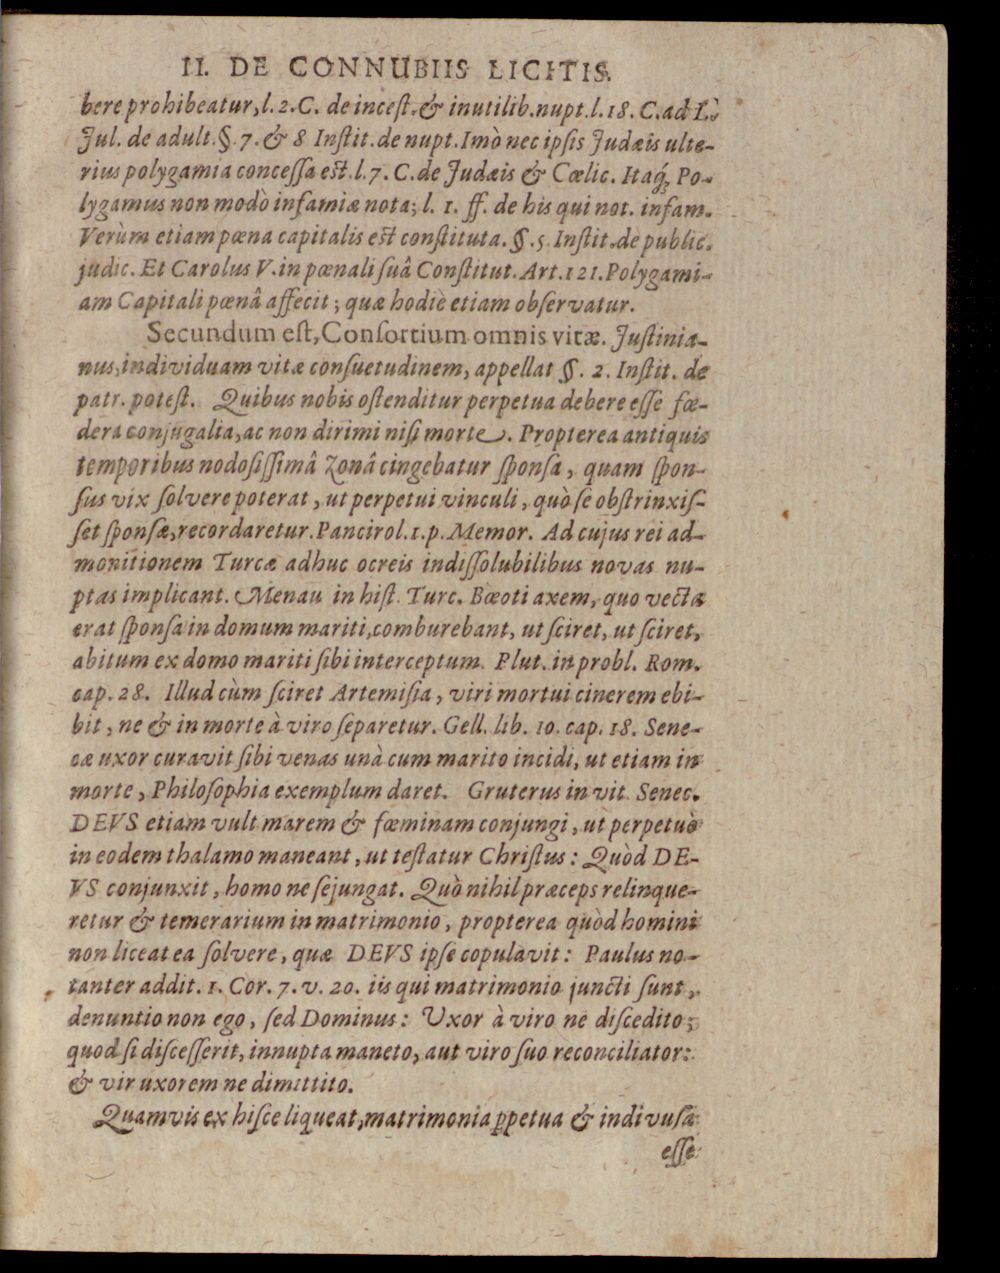 II. DE CONNUBIIS LICITIS.
bere prohibeatur, l. 2. C. de incest. & inutilib. nupt. l. 18. C. ad L.
Jul. de adult. §. 7. & 8 Instit. de nupt. Imò nec ipsis Judæis ulte-
rius polygamia concessa est. l. 7. C. de Judæis & Cœlic. Itaq; Po-
lygamus non modò infamiæ nota; l. 1. ff. de his qui not. infam.
Verùm etiam pœna capitalis est constituta. §. 5 Instit. de public.
judic. Et Carolus V. in pœnali suâ Constitut. Art. 121. Polygami-
am Capitali pœnâ affecit; quæ hodiè etiam observatur.
Secundum est, Consortium omnis vitæ. Justinia-
nus, individuam vitæ consuetudinem, appellat §. 2. Instit. de
patr. potest. Quibus nobis ostenditur perpetua debere esse fœ-
dera conjugalia, ac non dirimi nisi morte. Propterea antiquis
temporibus nodosissimâ Zonâ cingebatur sponsa, quam spon-
sus vix solvere poterat, ut perpetui vinculi, quò se obstrinxis-
set sponsæ, recordaretur. Pancirol. 1. p. Memor. Ad cujus rei ad-
monitionem Turcæ adhuc ocreis indissolubilibus novas nu-
ptas implicant. Menau in hist. Turc. Bœoti axem, quo vecta
erat sponsa in domum mariti, comburebant, ut sciret, ut sciret,
abitum ex domo mariti sibi interceptum. Plut. in probl. Rom.
cap. 28. Illud cùm sciret Artemisia, viri mortui cinerem ebi-
bit, ne & in morte à viro separetur. Gell. lib. 10. cap. 18. Sene-
cæ uxor curavit sibi venas unà cum marito incidi, ut etiam in
morte, Philosophia exemplum daret. Gruterus in vit. Senec.
DEVS etiam vult marem & fœminam conjungi, ut perpetuò
in eodem thalamo maneant, ut testatur Christus: Quòd DE-
VS conjunxit, homo ne sejungat. Quò nihil præceps relinque-
retur & temerarium in matrimonio, propterea quòd homini
non liceat ea solvere, quæ DEVS ipse copulavit: Paulus no-
tanter addit. 1. Cor. 7. v. 20. iis qui matrimonio juncti sunt,
denuntio non ego, sed Dominus: Uxor à viro ne discedito;
quod si discesserit, innupta maneto, aut viro suo reconciliator:
& vir uxorem ne dimittito.
Quamvis ex hisce liqueat, matrimonia ꝑpetua & indivusa
esse